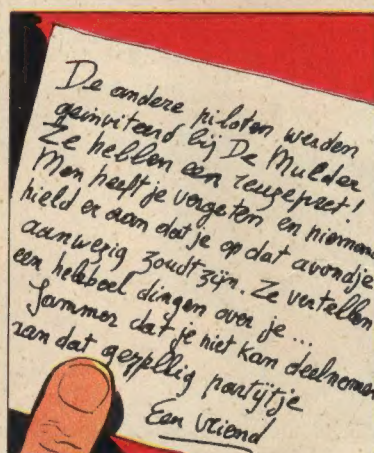 De andere piloten werden
geinviteerd bij De Mulder
Ze hebben een reuzepret!
Men heeft je vergeten en niemand
hield er aan dat je op dat avondje
aanwezig zoudt zijn. Ze vertellen
een heleboel dingen over je...
Jammer dat je niet kan deelnemen
aan dat gezellig partijtje
Een vriend